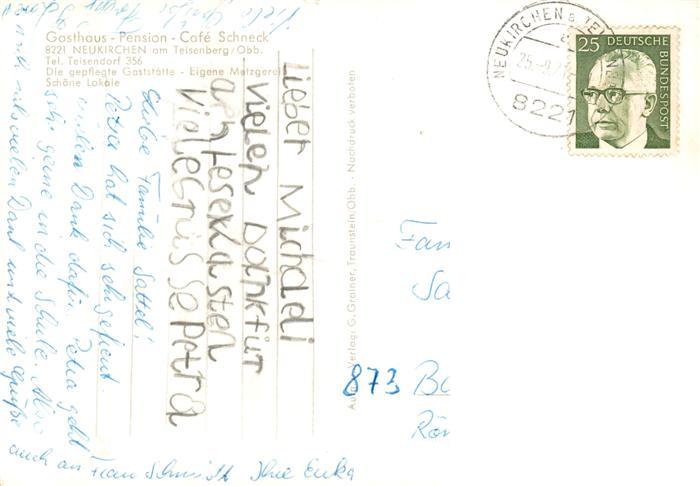 Gasthaus - Pension - Café Schneck
8221 NEUKIRCHEN am Teisenberg/Obb.
Tel. Teisendorf 356
Die gepflegte Gaststätte - Eigene Metzgerei
Schöne Lokale
Lieber Michaedi
vielen Dankfür
den Leseskasten
Viele Grüsse Petra
Liebe Familie Sattel!
Petra hat sich sehr gefreut
vielen Dank dafür. Petra geht
sehr gerne in die Schule. Also
noch mals vielen Dank und viele Grüße
auch an Frau Schmidt Ihre Erika
Viele Grüße
Verlag: G. Grainer, Traunstein/Obb. - Nachdruck verboten
NEUKIRCHEN a. TE
8221
25 DEUTSCHE
BUNDESPOST
Fam
Sa
873 Ba
Röm